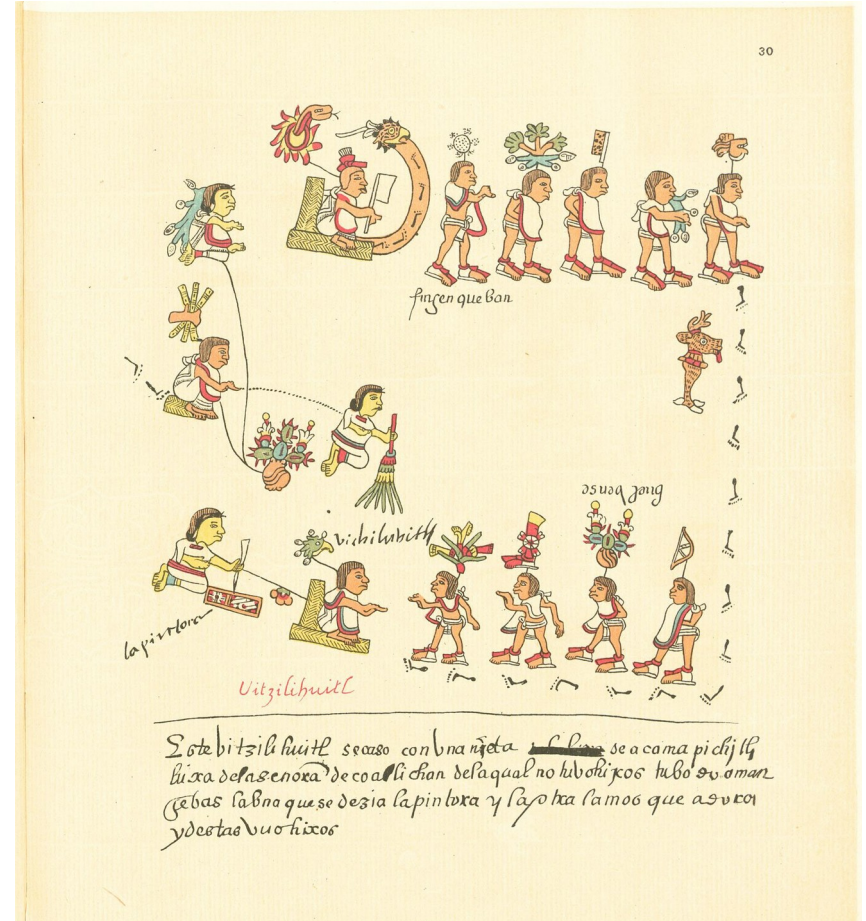 30
fingen que ban
buel bense
vichilubitl
la pintora
Uitzilihuitl
Este bitzilihuitl se caso con una nieta de acamapichitli
hixa de la senora de coatlichan de la qual no tubo hixos tubo
la una que se dezia la pintora y la
y destas vuo hixos